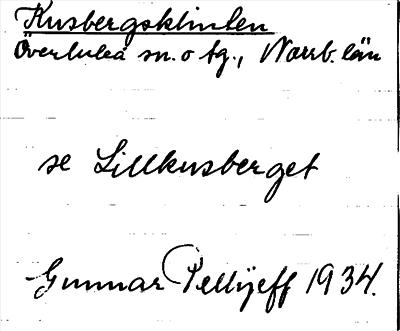 Kusbergsklinten
Överluleå sn. o tg., Norrb. län
se Lillkusberget
Gunnar Pellijeff 1934.